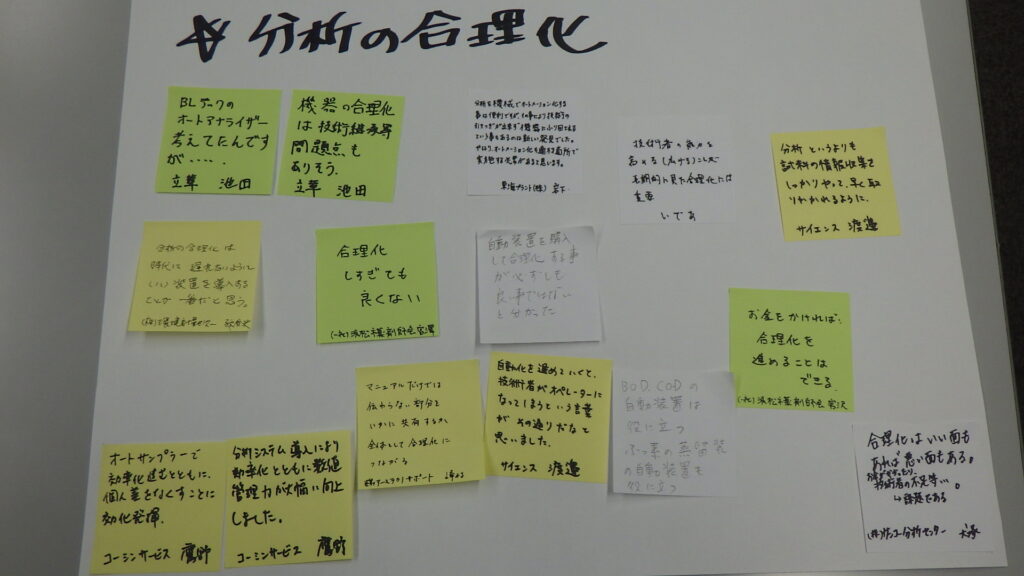 ☆ 分析の合理化
BLテックの
オートアナライザー
考えてたんです
が・・・・
立華 池田
機器の合理化
は技術継承等
問題点も
ありそう。
立華 池田
分析を機械でオートメーション化する
事は便利ですが、
という事もあるのは新しい発見でした。
やはり、オートメーション化も適材適所で
東海プラント(株) 宮下
技術者の能力を
高める(広げる)ことが
長期的に見た合理化には
重要
いであ
分析というよりも
試料の情報収集を
しっかりやって、早く取
りかかれるように。
サイエンス 渡邉
分析の合理化は
時代に遅れないように
いい装置を導入する
ことが一番だと思う。
合理化
しすぎても
良くない
(一社)浜松市薬剤師会 宮澤
自動装置を購入
して合理化する事
が必ずしも
良い事ではない
と分かった
お金をかければ、
合理化を
進めることは
できる。
(一社)浜松市薬剤師会 宮沢
マニュアルだけでは
伝わらない部分を
いかに共有するか
全体として合理化に
つながる
自動化を進めていくと、
技術者がオペレーターに
なってしまうという言葉
が その通りだなと
思いました。
サイエンス 渡邉
BOD、CODの
自動装置は
役に立つ
ふっ素の蒸留装
の自動装置も
役に立つ
オートサンプラーで
効率化進むとともに、
個人差をなくすことに
効化発揮。
コーシンサービス 鷹野
分析システム導入により
効率化とともに数値
管理力が大幅に向上
しました。
コーシンサービス 鷹野
合理化はいい面も
あれば悪い面もある。
技術者の不足等…。
↳課題である